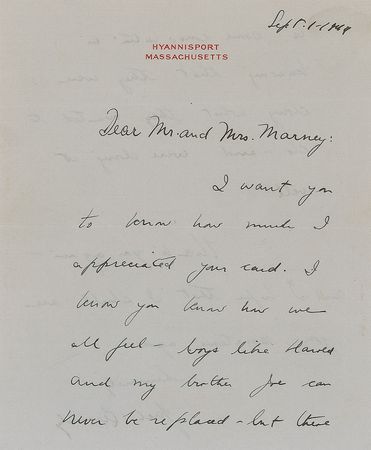 Sept. 1-1944
HYANNISPORT
MASSACHUSETTS
Dear Mr. and Mrs. Marney:
I want you
to know how much I
appreciated your card. I
know you know how we
all feel - boys like Harold
and my brother Joe can
never be replaced - but there